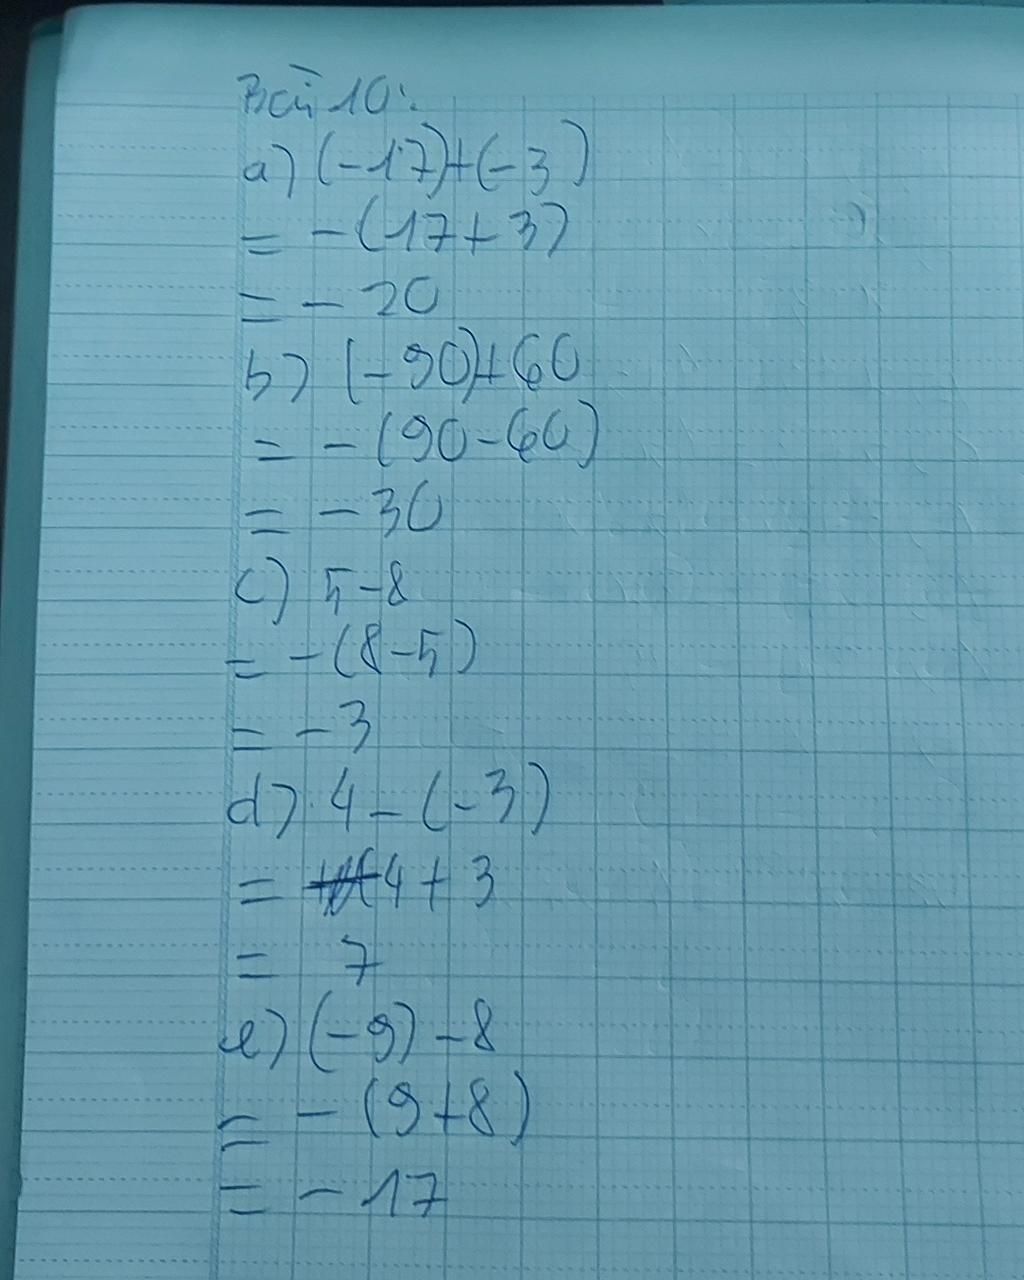 Bài 10:
a) (-17)+(-3)
= -(17+3)
= - 20
b) (-90)+60
= -(90-60)
= -30
c) 5-8
= -(8-5)
= -3
d) 4-(-3)
= 4+3
= 7
e) (-9)-8
= -(9+8)
= -17